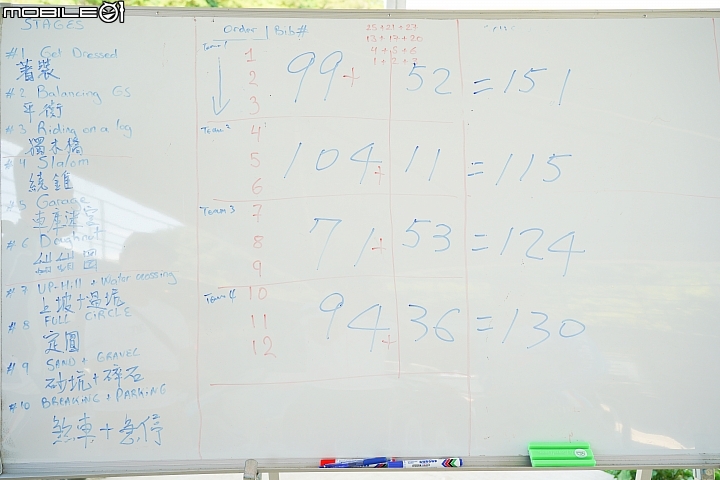 MOBILE01
STAGES
#1 Get Dressed
著裝
#2 Balancing GS
平衡
#3 Riding on a log
獨木橋
#4 Slalom
繞錐
#5 Garage
#6 Doughnut
甜甜圈
#7 UP-Hill + Water crossing
上坡+過坑
#8 FULL CIRCLE
定圓
#9 SAND + GRAVEL
砂坑+碎石
#10 BREAKING + PARKING
煞車+急停
Order | Bib#
25+21+27
13+17+20
4+5+6
Team 1
1
2
3
99+52=151
Team 2
4
5
6
104+11=115
Team 3
7
8
9
71+53=124
Team 4
10
11
12
94+36=130